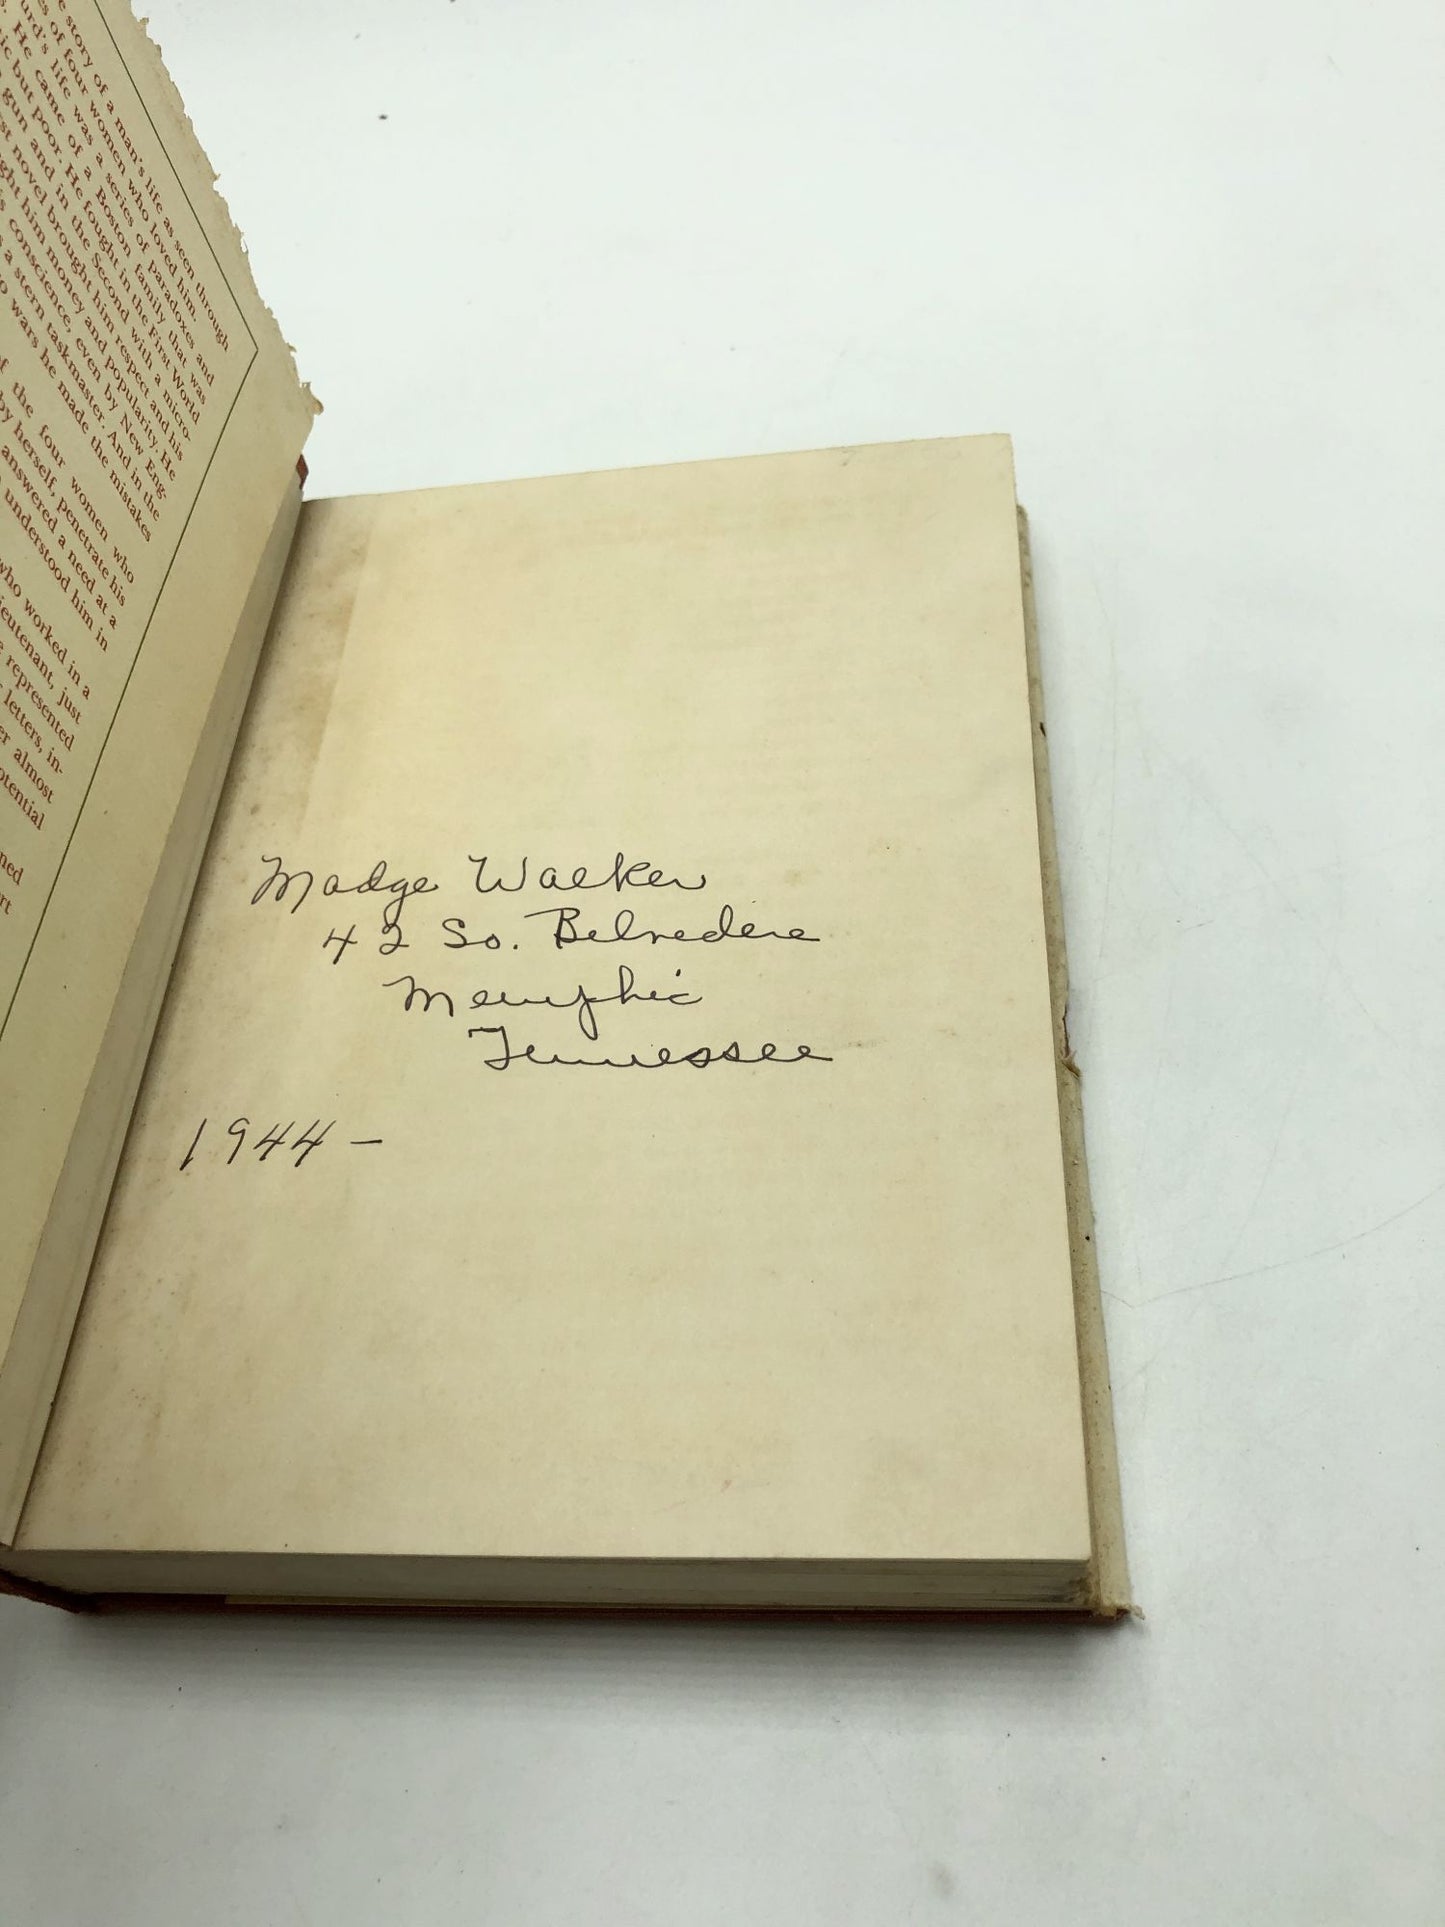 e story of a man's life as seen through
s of four women who loved him.
urd's life was a series of paradoxes and
. He came of a Boston family that was
ic but poor. He fought in the First World
gun and in the Second with a micro-
st novel brought him respect and his
ght him money and popularity. He
s conscience, even by New Eng-
s a stern taskmaster. And in the
o wars he made the mistakes
of the four women who
by herself, penetrate his
answered a need at a
understood him in
who worked in a
ieutenant, just
e represented
letters, in-
er almost
otential
ned
rt
Madge Walker
42 So. Belvedere
Memphis
Tennessee
1944 –